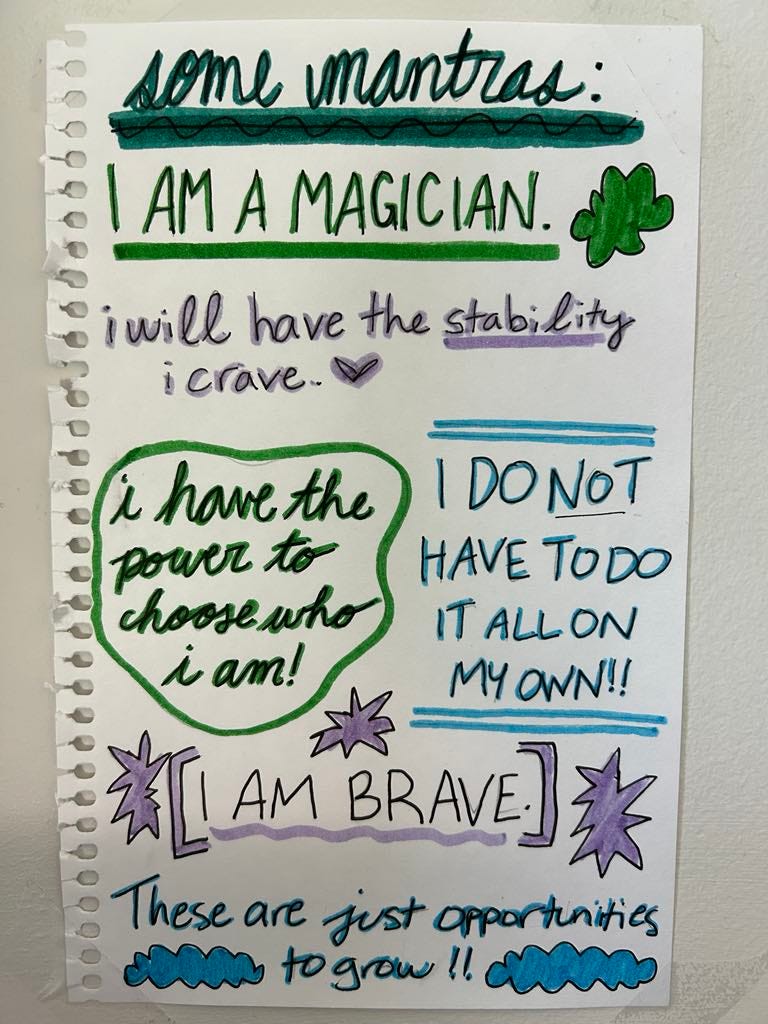 some mantras:
I AM A MAGICIAN.
i will have the stability
i crave.
i have the
power to
choose who
i am!
I DO NOT
HAVE TO DO
IT ALL ON
MY OWN!!
[I AM BRAVE.]
These are just opportunities
to grow!!